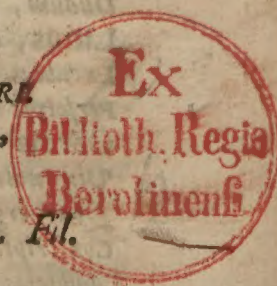 RI.
Ex
Biblioth. Regia
Berolinenſi
. Fil.